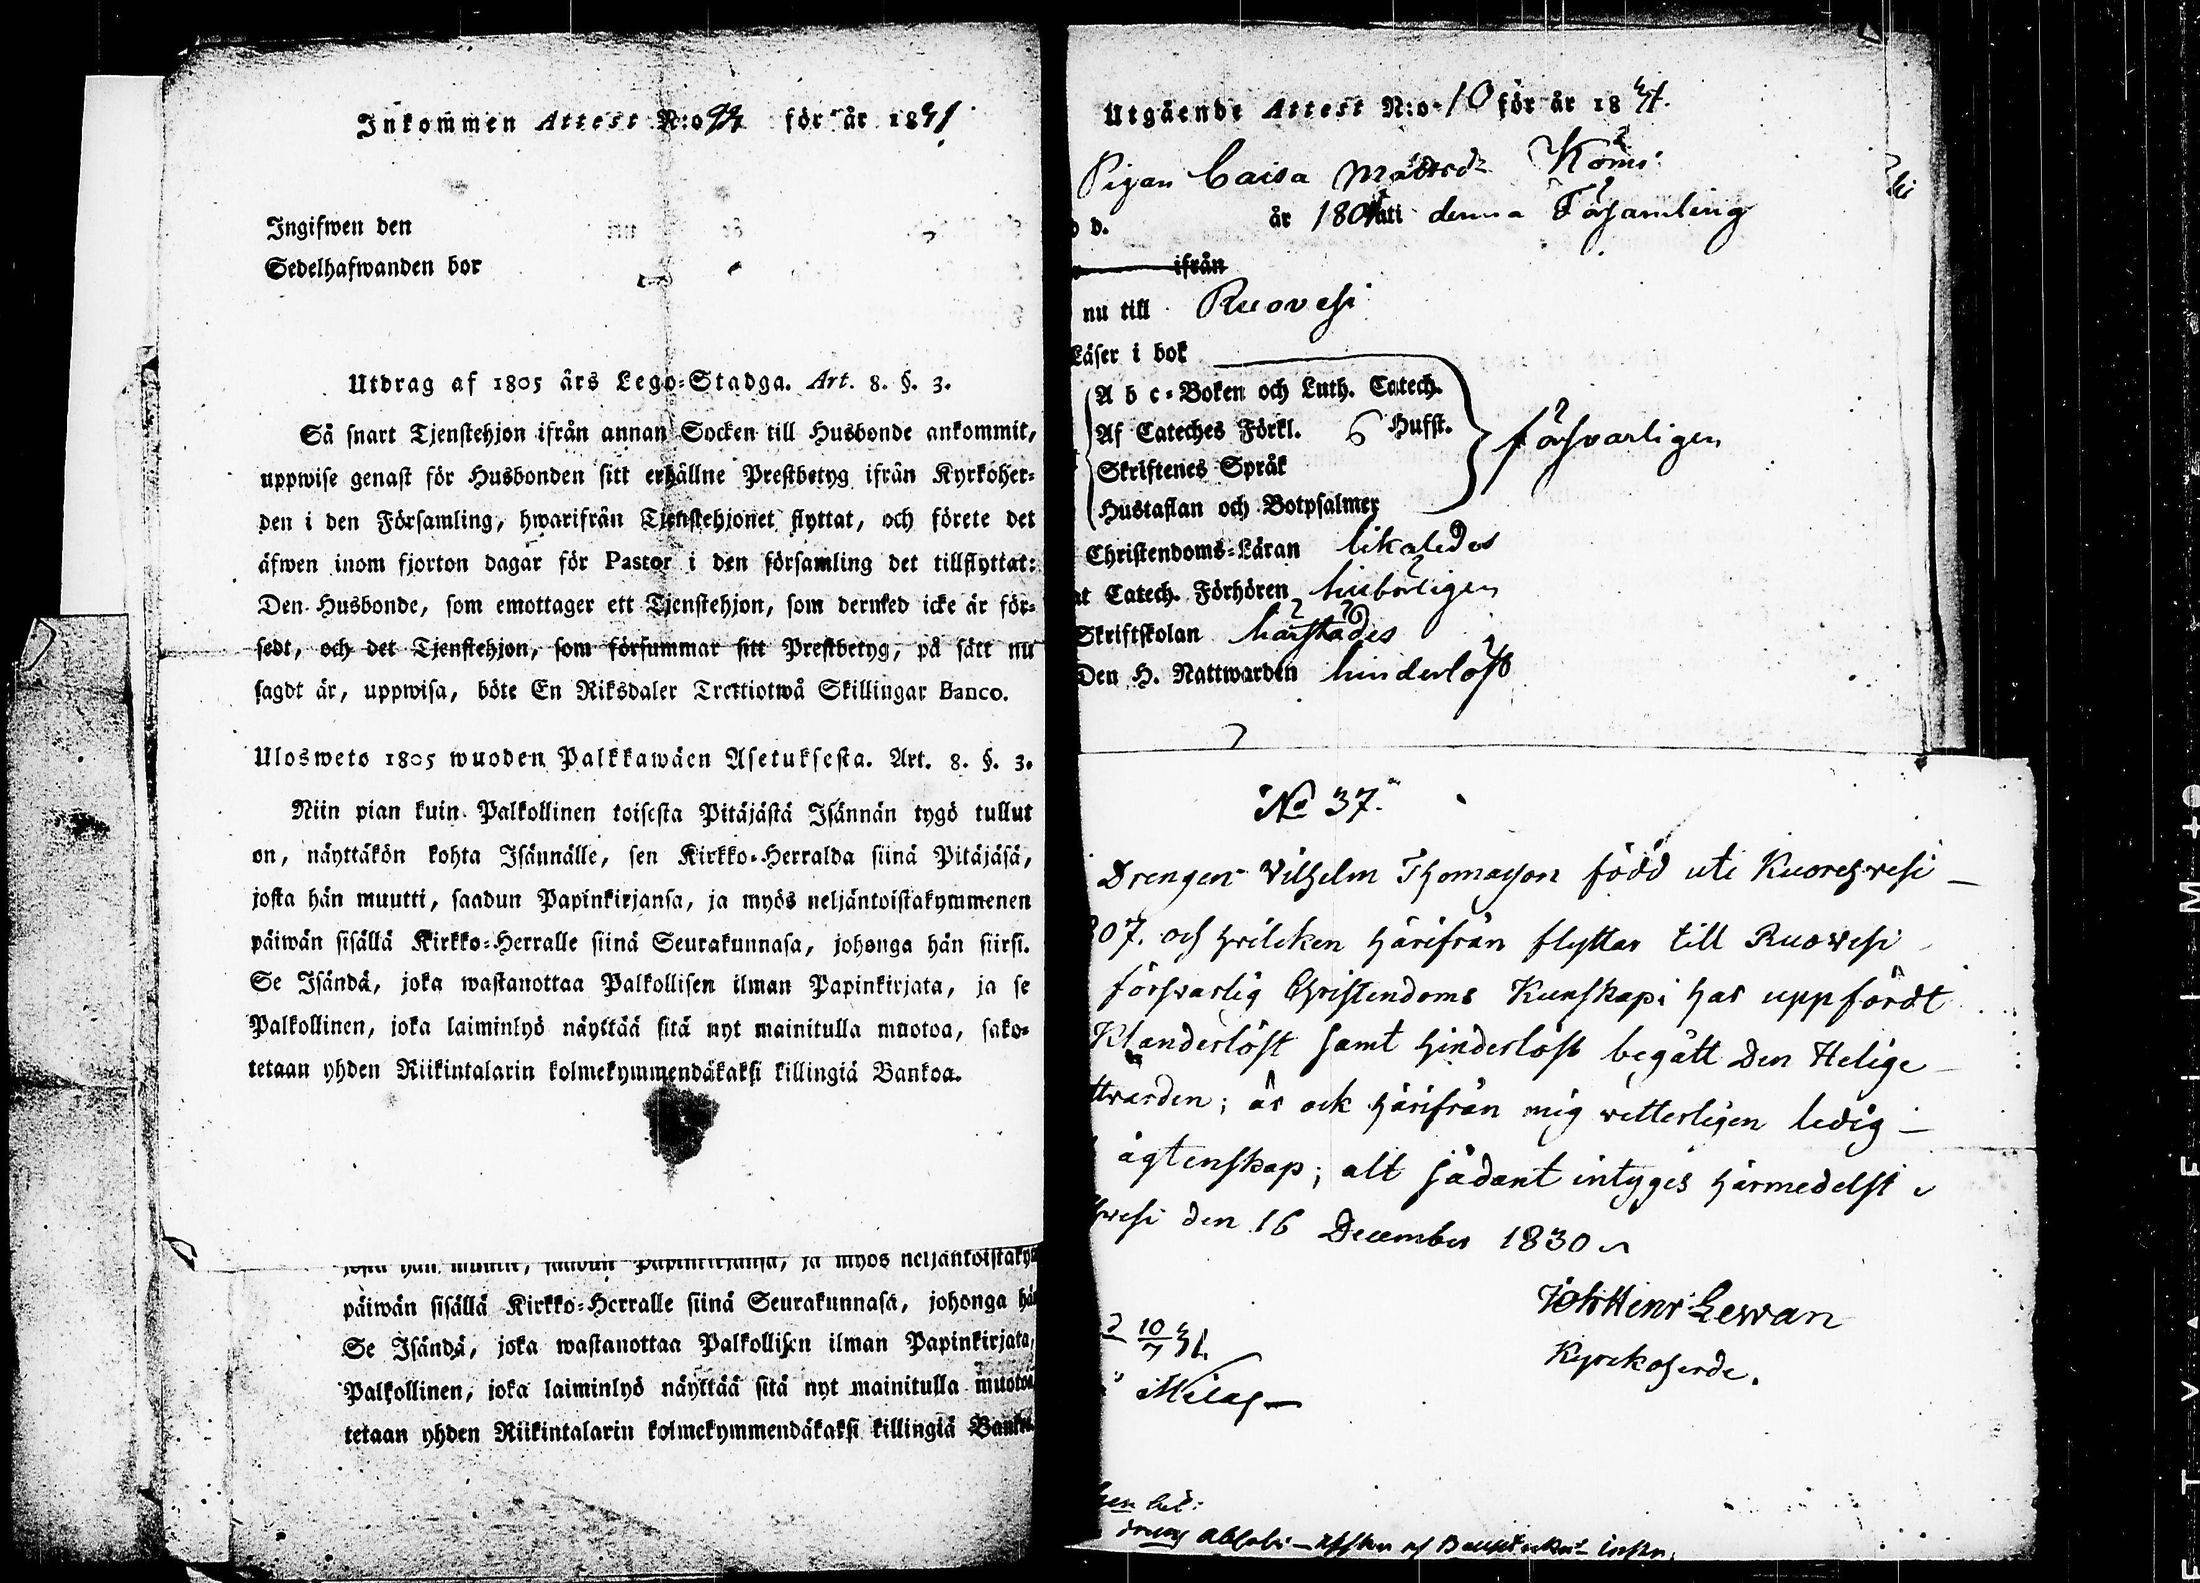 Inkommen Attest N:o 22 för år 1831
Ingifwen den
Sedelhafwanden bor
Utdrag af 1805 års Lego-Stadga. Art. 8. §. 3.
Så snart Tjenstehjon ifrån annan Socken till Husbonde ankommit,
uppwise genast för Husbonden sitt erhållne Prestbetyg ifrån Kyrkoher-
den i den Församling, hwarifrån Tjenstehjonet flyttat, och förete det
äfwen inom fjorton dagar för Pastor i den församling det tillflyttat:
Den Husbonde, som emottager ett Tjenstehjon, som dermed icke är för-
sedt, och det Tjenstehjon, som försummar sitt Prestbetyg, på sätt nu
sagdt är, uppwisa, böte En Riksdaler Trettiotwå Skillingar Banco.
Ulosweto 1805 wuoden Palkkawäen Asetuksesta. Art. 8. §. 3.
Niin pian kuin Palkollinen toisesta Pitäjästä Isännän tygö tullut
on, näyttäkön kohta Isännälle, sen Kirkko-Herralda siinä Pitäjäsä,
josta hän muutti, saadun Papinkirjansa, ja myös neljäntoistakymmenen
päiwän sisällä Kirkko-Herralle siinä Seurakunnasa, johonga hän siirsi.
Se Isändä, joka wastanottaa Palkollisen ilman Papinkirjata, ja se
Palkollinen, joka laiminlyö näyttää sitä nyt mainitulla muotoa, sako-
tetaan yhden Riikintalarin kolmekymmendäkaksi killingiä Bankoa.
josta hän muutti, saadun Papinkirjansa, ja myös neljäntoistaky
päiwän sisällä Kirkko-Herralle siinä Seurakunnasa, johonga hä
Se Isändä, joka wastanottaa Palkollisen ilman Papinkirjata,
Palkollinen, joka laiminlyö näyttää sitä nyt mainitulla muotoa
tetaan yhden Riikintalarin kolmekymmendäkaksi killingiä Banko
Utgående Attest N:o 10 för år 1831.
Pigan Caisa Mattsdr
d. år 180 uti denna Församling
ifrån
nu till Ruovesi
Läser i bok
A b c-Boken och Luth. Catech.
Af Cateches Förkl. 6 Hufst.
Skriftenes Språk
Hustaflan och Botpsalmer
försvarligen
Christendoms-Läran likaledes
at Catech. Förhören behörigen
Skriftskolan härstädes
Den H. Nattwarden hinderlöst
No 37.
Drengen Vilhelm Thomasson född uti Kuorehvesi
07. och hvilcken härifrån flyttar till Ruovesi
försvarlig Christendoms Kunskap; har uppfördt
Klanderlöst samt hinderlöst begått Den Helige
ttvarden; är ock härifrån mig vetterligen ledig
ägtenskap; alt sådant intyges härmedelst
hvesi den 16 December 1830
Joh Henr Lewan
Kyrckoherde.
10/7 31.